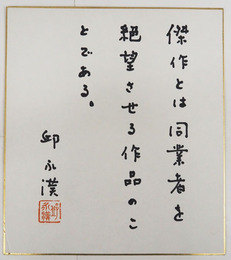 傑作とは同業者を
絶望させる作品のこ
とである。
邱永漢